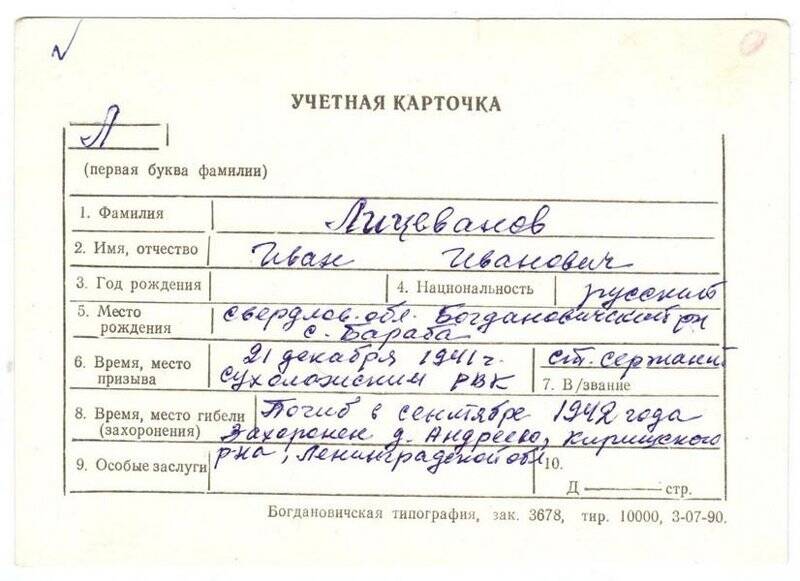 УЧЕТНАЯ КАРТОЧКА
Л
(первая буква фамилии)
1. Фамилия Лицеванов
2. Имя, отчество Иван Иванович
3. Год рождения 4. Национальность русский
5. Место рождения свердлов. обл. Богдановичский р-н
с. Бараба
6. Время, место призыва 21 декабря 1941 г.
сухоложским РВК
ст. сержант
7. В/звание
8. Время, место гибели (захоронения) Погиб в сентябре 1942 года
Захоронен д. Андреево, Киришского
р-на, Ленинградской обл
9. Особые заслуги 10.
Д — стр.
Богдановичская типография, зак. 3678, тир. 10000, 3-07-90.